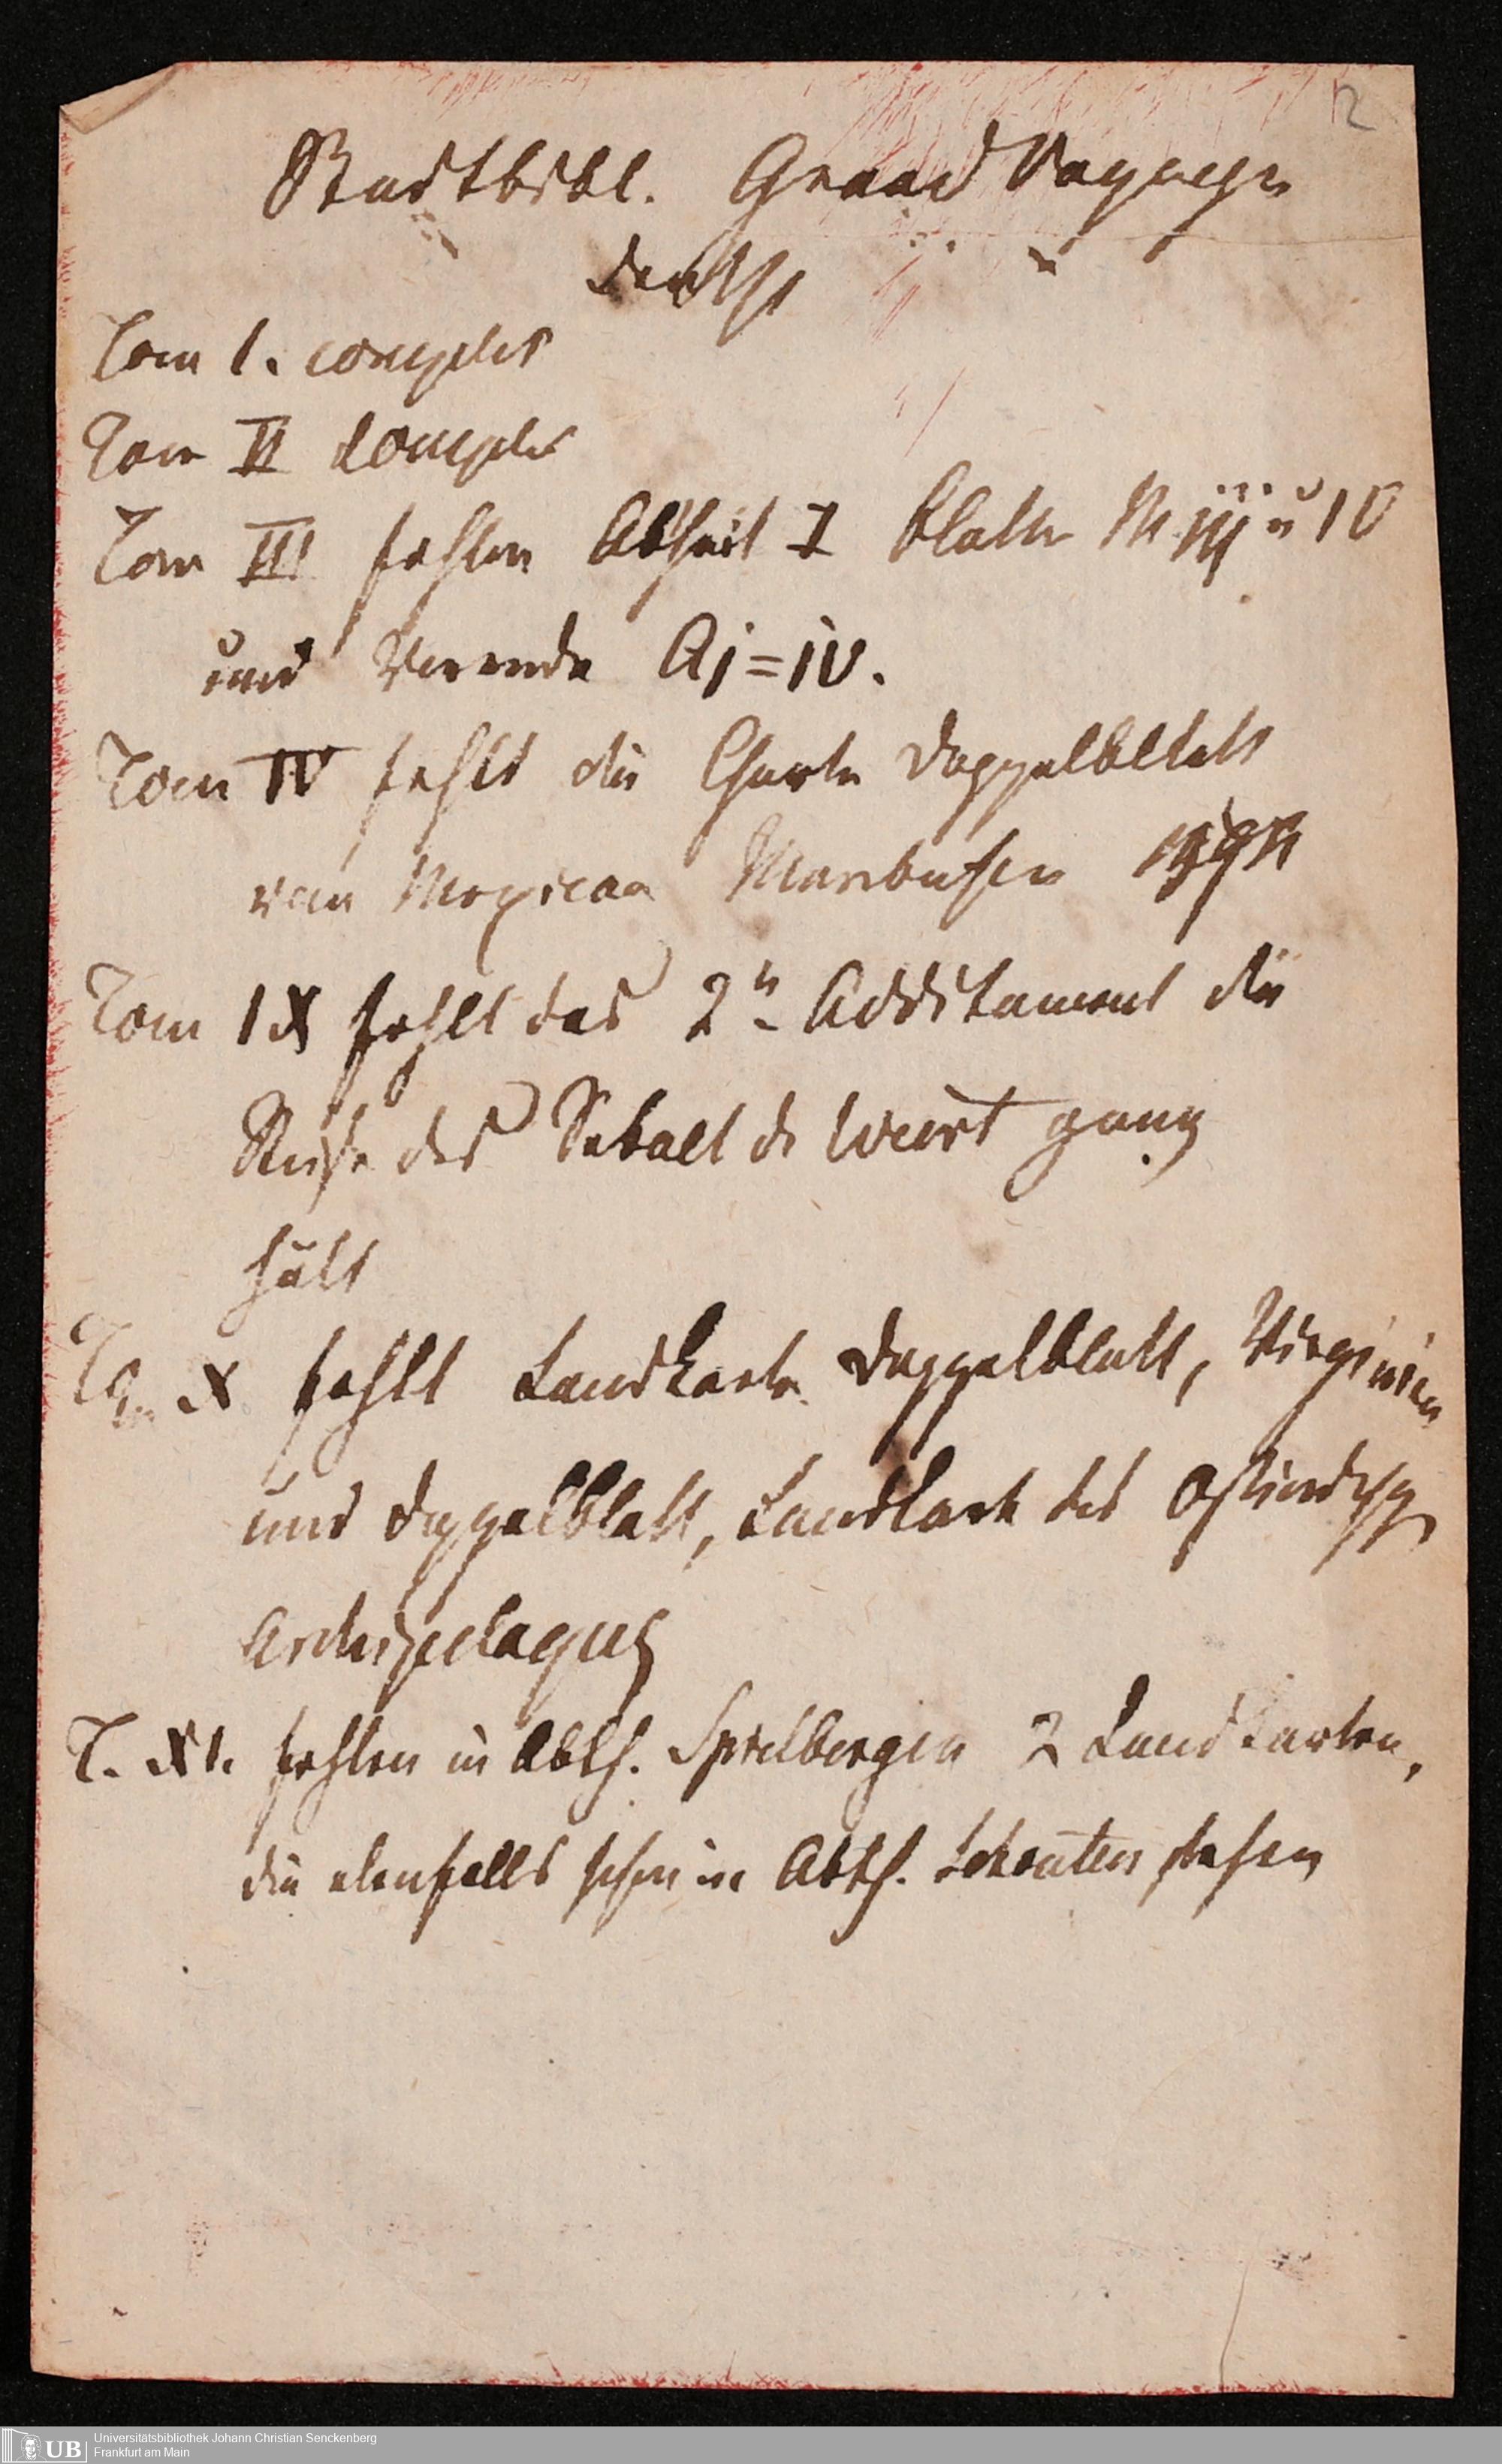 2
Stadtbibl. Grand Voyagen
deutsch
Tom I. complet
Tom II complet
Tom III fehlen Abtheil I Blatt M iij u IV
und Ai=iv.
Tom IV fehlt die Charte Doppelblatt
von Mexican Meerbusen
Tom IX fehlt das 2n Additament die
Reise des Sebalt de Weert ganz
hält
To. X fehlt Landkarte Doppelblatt, Virginien
und Doppelblatt, Landkarte des Ostindisch
Archipelagus
T. XI. fehlen in Abth. Spielbergen 2 Landkarten,
die ebenfalls schon in Abth. Schouten stehen
UB
Universitätsbibliothek Johann Christian Senckenberg
Frankfurt am Main